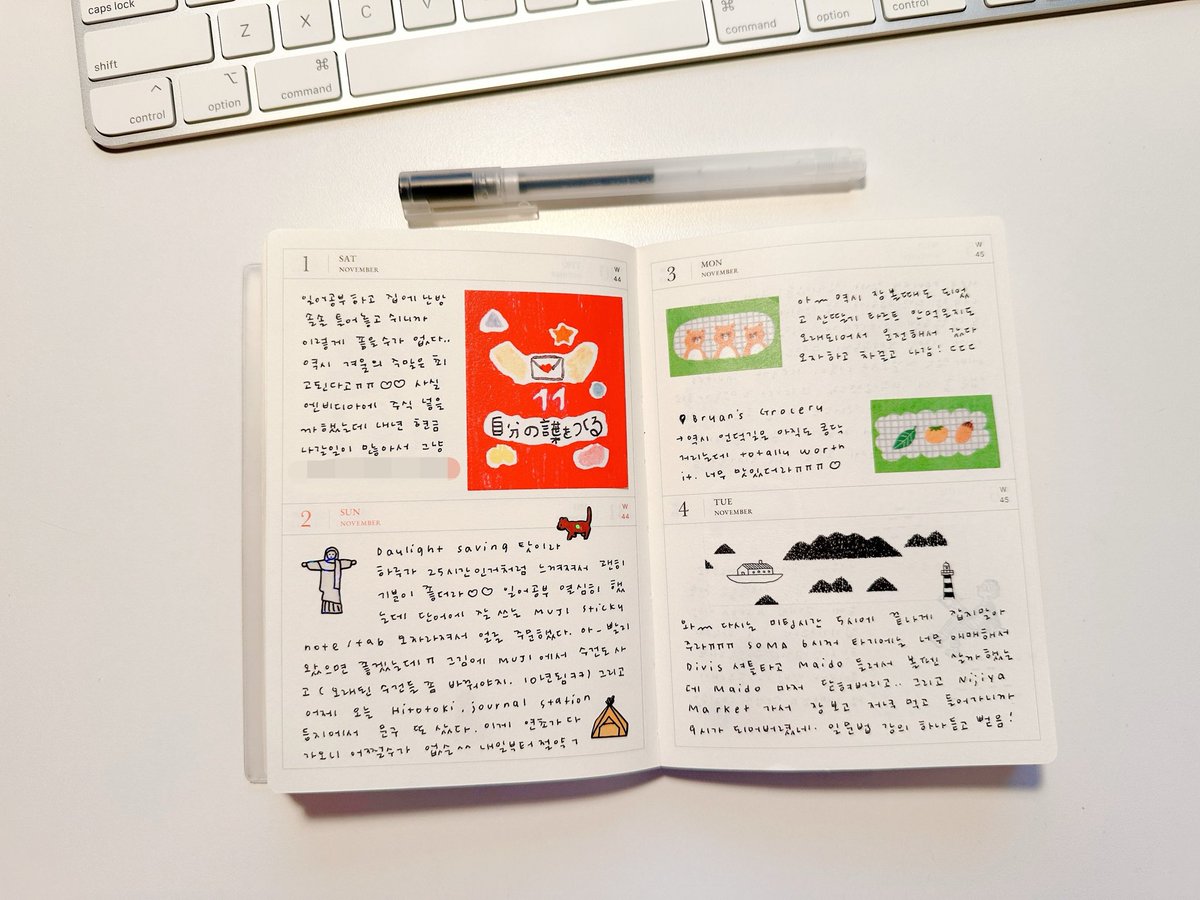 caps lock
Z
X
C
V
⌘
command
option
control
shift
^
control
⌥
option
⌘
command
1
SAT
NOVEMBER
W
44
일어공부하고 집에 난방
솔솔 틀어놓고 쉬니까
이렇게 좋을수가 없다..
역시 겨울의 주말은 최
고된다고ㅠㅠ ♡♡ 사실
엔비디아에 주식 넣을
까 했는데 내년 현금
나갈일이 많아서 그냥
11
自分の
をつくる
2
SUN
NOVEMBER
W
44
Daylight saving 탓이라
하루가 25시간인거처럼 느껴져서 괜히
기분이 좋더라♡♡ 일어공부 열심히 했
는데 단어에 잘 쓰는 MUJI sticky
note/tab 모자라져서 얼른 주문했다. 아-빨리
왔으면 좋겠는데ㅠ 그김에 MUJI에서 수건도 사
고 (오래된 수건들 좀 바꿔야지. 10년됨ㅋㅋ) 그리고
어제 오늘 Hitotoki, journal station
등지에서 문구 또 샀다. 이게 연초가 다
가오니 어쩔수가 없슨^^ 내일부터 절약ㄱ
3
MON
NOVEMBER
W
45
아~~ 역시 장볼때도 되었
고 산딸기 타르트 안먹은지도
오래되어서 운전해서 갔다
모자하고 차끌고 나감! ㄷㄷㄷ
Bryan's Grocery
→역시 언덕길을 아직도 콩닥
거리는데 totally worth
it. 너무 맛있더라ㅠㅠㅠ ♡
4
TUE
NOVEMBER
W
45
와~~ 다시는 미팅시간 5시에 끝나게 잡지말아
주라ㅠㅠㅠ SOMA 6시꺼 타기에는 너무 애매해서
Divis 셔틀타고 Maido 들러서 볼펜 살까 했는
데 Maido 마저 닫혀버리고.. 그리고 Nijiya
Market 가서 장보고 저녁 먹고 들어가니까
9시가 되어버렸네. 일문법 강의 하나듣고 뻗음!